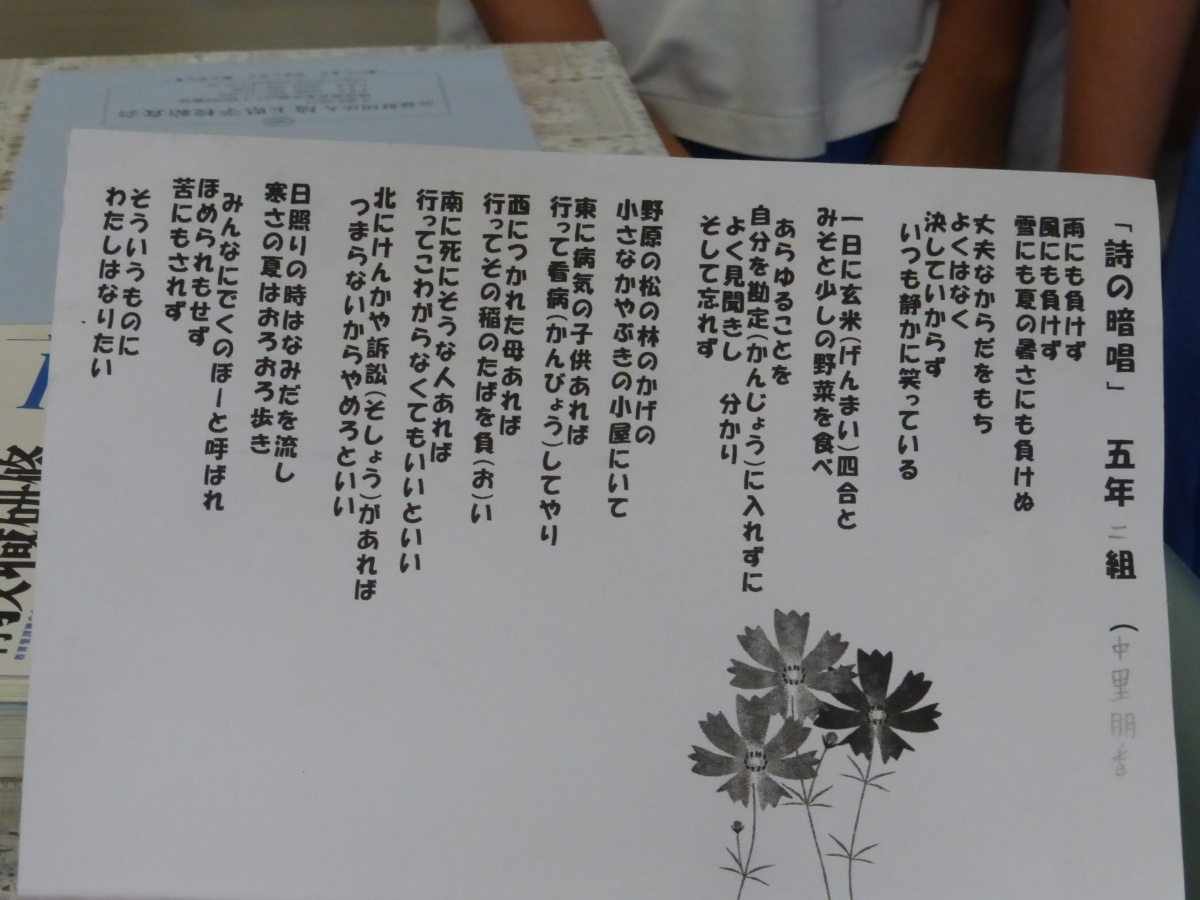 「詩の暗唱」 五年 二 組 (中里朋香
雨にも負けず
風にも負けず
雪にも夏の暑さにも負けぬ
丈夫なからだをもち
よくはなく
決していからず
いつも静かに笑っている
一日に玄米(げんまい)四合と
みそと少しの野菜を食べ
あらゆることを
自分を勘定(かんじょう)に入れずに
よく見聞きし 分かり
そして忘れず
野原の松の林のかげの
小さなかやぶきの小屋にいて
東に病気の子供あれば
行って看病(かんびょう)してやり
西につかれた母あれば
行ってその稲のたばを負(お)い
南に死にそうな人あれば
行ってこわがらなくてもいいといい
北にけんかや訴訟(そしょう)があれば
つまらないからやめろといい
日照りの時はなみだを流し
寒さの夏はおろおろ歩き
みんなにでくのぼーと呼ばれ
ほめられもせず
苦にもされず
そういうものに
わたしはなりたい
公益財団法人 埼玉県学校給食会